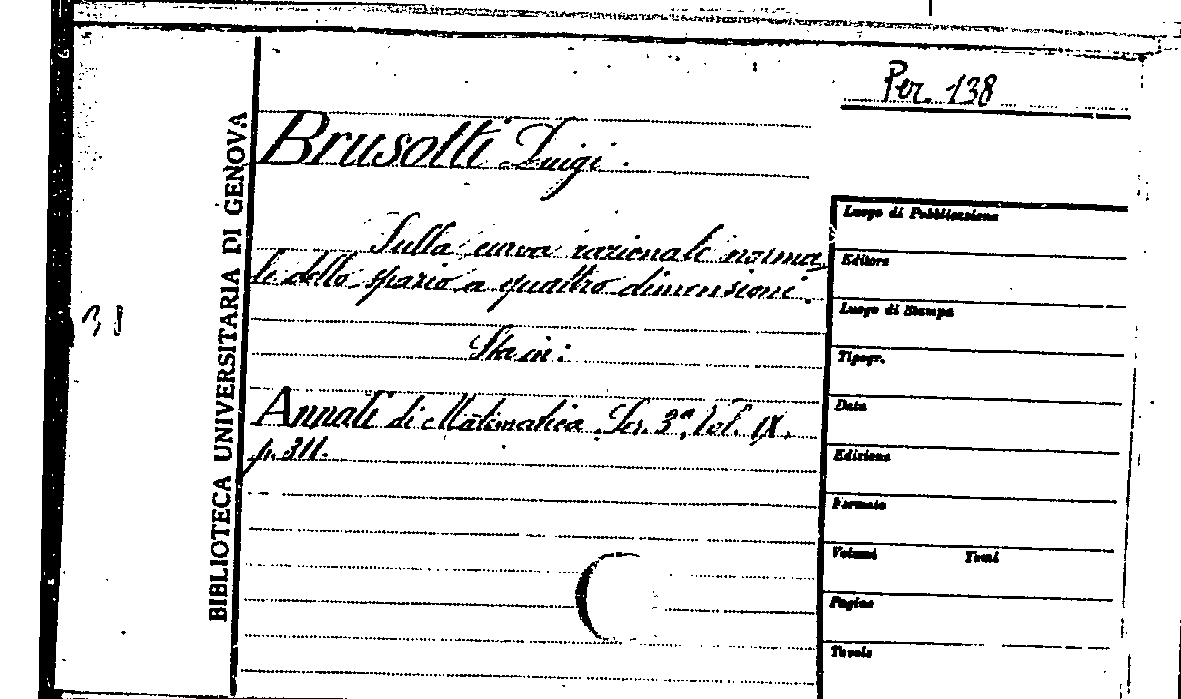 Per. 138
BIBLIOTECA UNIVERSITARIA DI GENOVA
Brusotti Luigi.
Sulla curva razionale norma
le dello spazio a quattro dimensioni.
Sta in:
Annali di Matematica. Ser. 3ª, Vol. IX.
p. 311.
38
Luogo di Pubblicazione
Editore
Luogo di Stampa
Tipogr.
Data
Edizione
Formato
Volumi Tomi
Pagine
Tavole